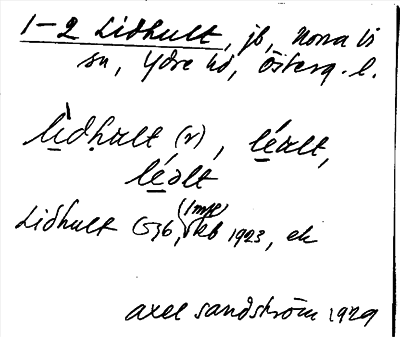 1-2 Lidhult, jb, Norra Vi
sn, Ydre hd, Österg. l.
lìdhult (r), léult,
léolt
Lidhult
1923, ek
Axel Sandström 1929